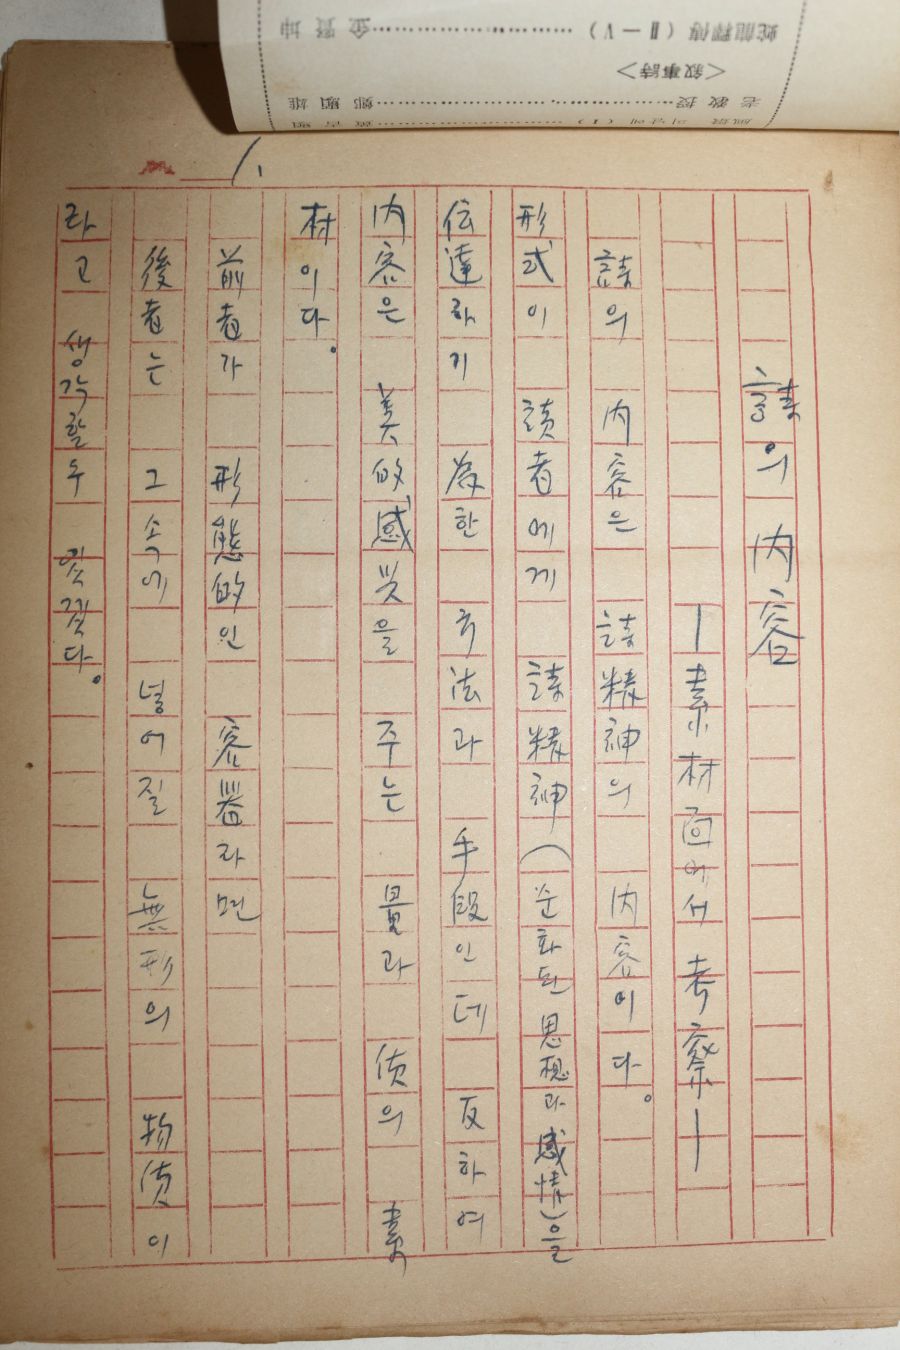 1.
詩의 内容
―素材面에서 考察―
詩의 内容은 詩精神의 内容이다.
形式이 讀者에게 詩精神(순화된 思想과 感情)을
伝達하기 為한 方法과 手段인데 反하여
内容은 美的感興을 주는 量과 质의 素
材이다.
前者가 形態的인 容器라면
後者는 그 속에 넣어질 無形의 物质이
라고 생각할 수 있겠다.
(Ⅱ―Ⅴ)…………………金賢坤
<敍事詩>
老敎授…………………鄭順雄